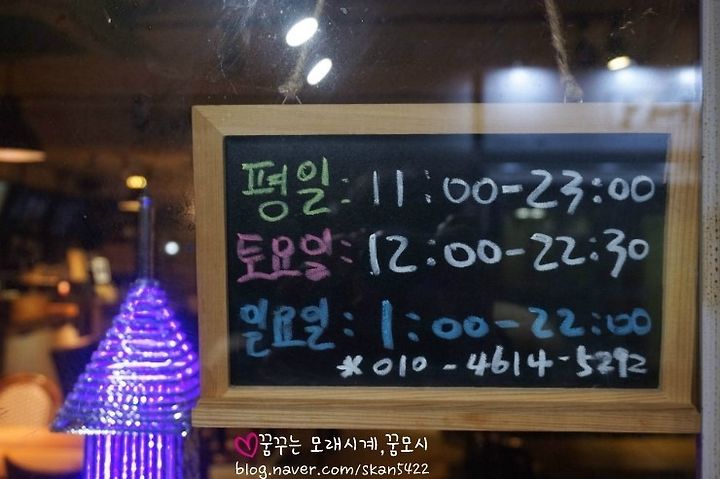 평일: 11:00-23:00
토요일: 12:00-22:30
일요일: 1:00-22:00
*010-4614-5292
♡꿈꾸는 모래시계,꿈모시
blog.naver.com/skan5422